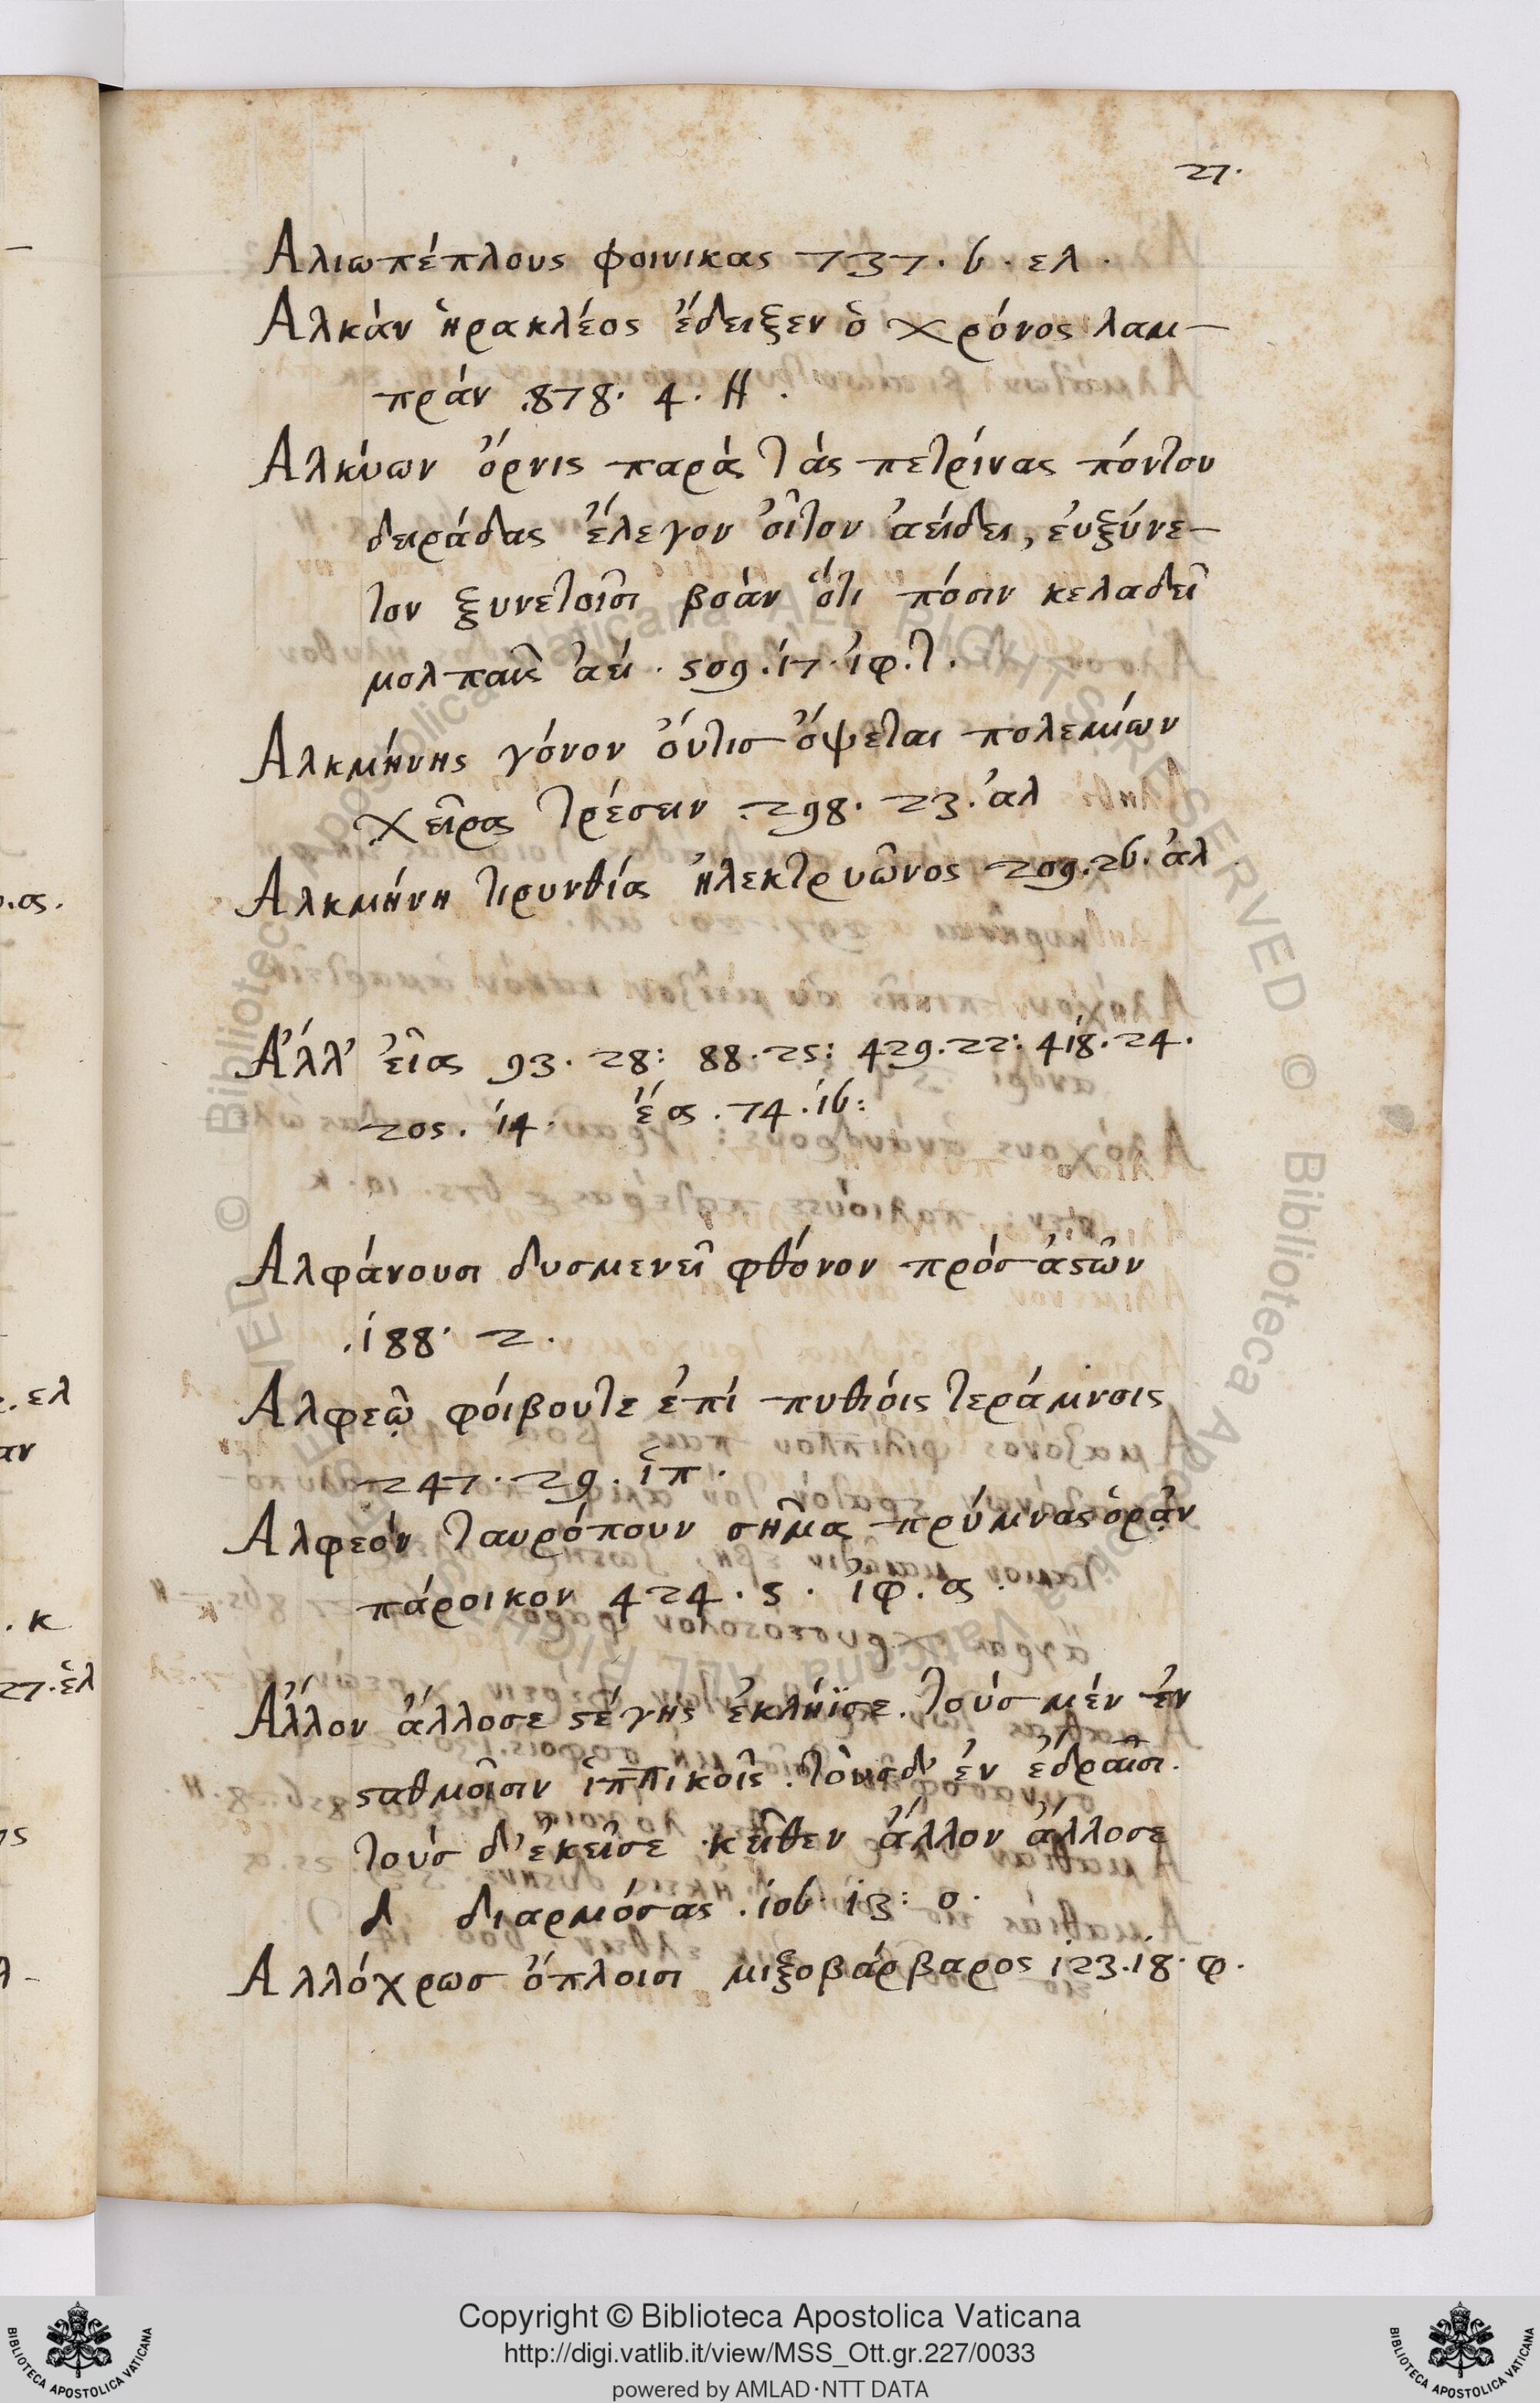 27.
Αλιωπέπλους φοινικας 737. 6. ελ.
Αλκὰν ἡρακλέος ἔδειξεν ὁ χρόνος λαμ-
πράν .878. 4. Η.
Αλκύων ὄρνις παρὰ τὰς πετρίνας πόντου
δειράδας ἔλεγον οἶτον ἀείδει, ἐυξύνε-
τον ξυνετοῖσι βοὰν ὅτι πόσιν κελαδεῖ
μολπαῖς ἀεί. 509. 17. ἰφ. τ.
Αλκμήνης γόνον ὄυτισ ὄψεται πολεμίων
χεῖρα τρέσειν .298. 23. ἀλ
Αλκμήνη τιρυνθία ἠλεκτρυῶνος 209. 26. ἀλ
Ἄλλ' εἶα 93. 28: 88. 25: 429. 22: 418. 24.
205. 14. ἔα. 74. 16:
Αλφάνουσι δυσμενεῖ φθόνον πρόσ ἀϛῶν
.188. 2.
Αλφεῷ φόιβουτε ἐπί πυθιόις τεράμνοις
247. 29. ἱπ.
Αλφεὸν ταυρόπουν σῆμα πρύμνας ὁρᾷν
πάροικον 424. 5. ἰφ. α.
Ἄλλον ἄλλοσε ϛέγης ἐκλήϊσε. τοὺσ μὲν ἐν
ϛαθμοῖσιν ἱππικοῖς. τόυσδ' ἐν ἕδραισι.
τοὺσ δ' ἐκεῖσε κεῖθεν ἄλλον ἄλλοσε
διαρμόσας. 106. 13: ο.
Αλλόχρωσ ὅπλοισι μιξοβάρβαρος 123. 18. φ.
Copyright © Biblioteca Apostolica Vaticana
http://digi.vatlib.it/view/MSS_Ott.gr.227/0033
powered by AMLAD·NTT DATA